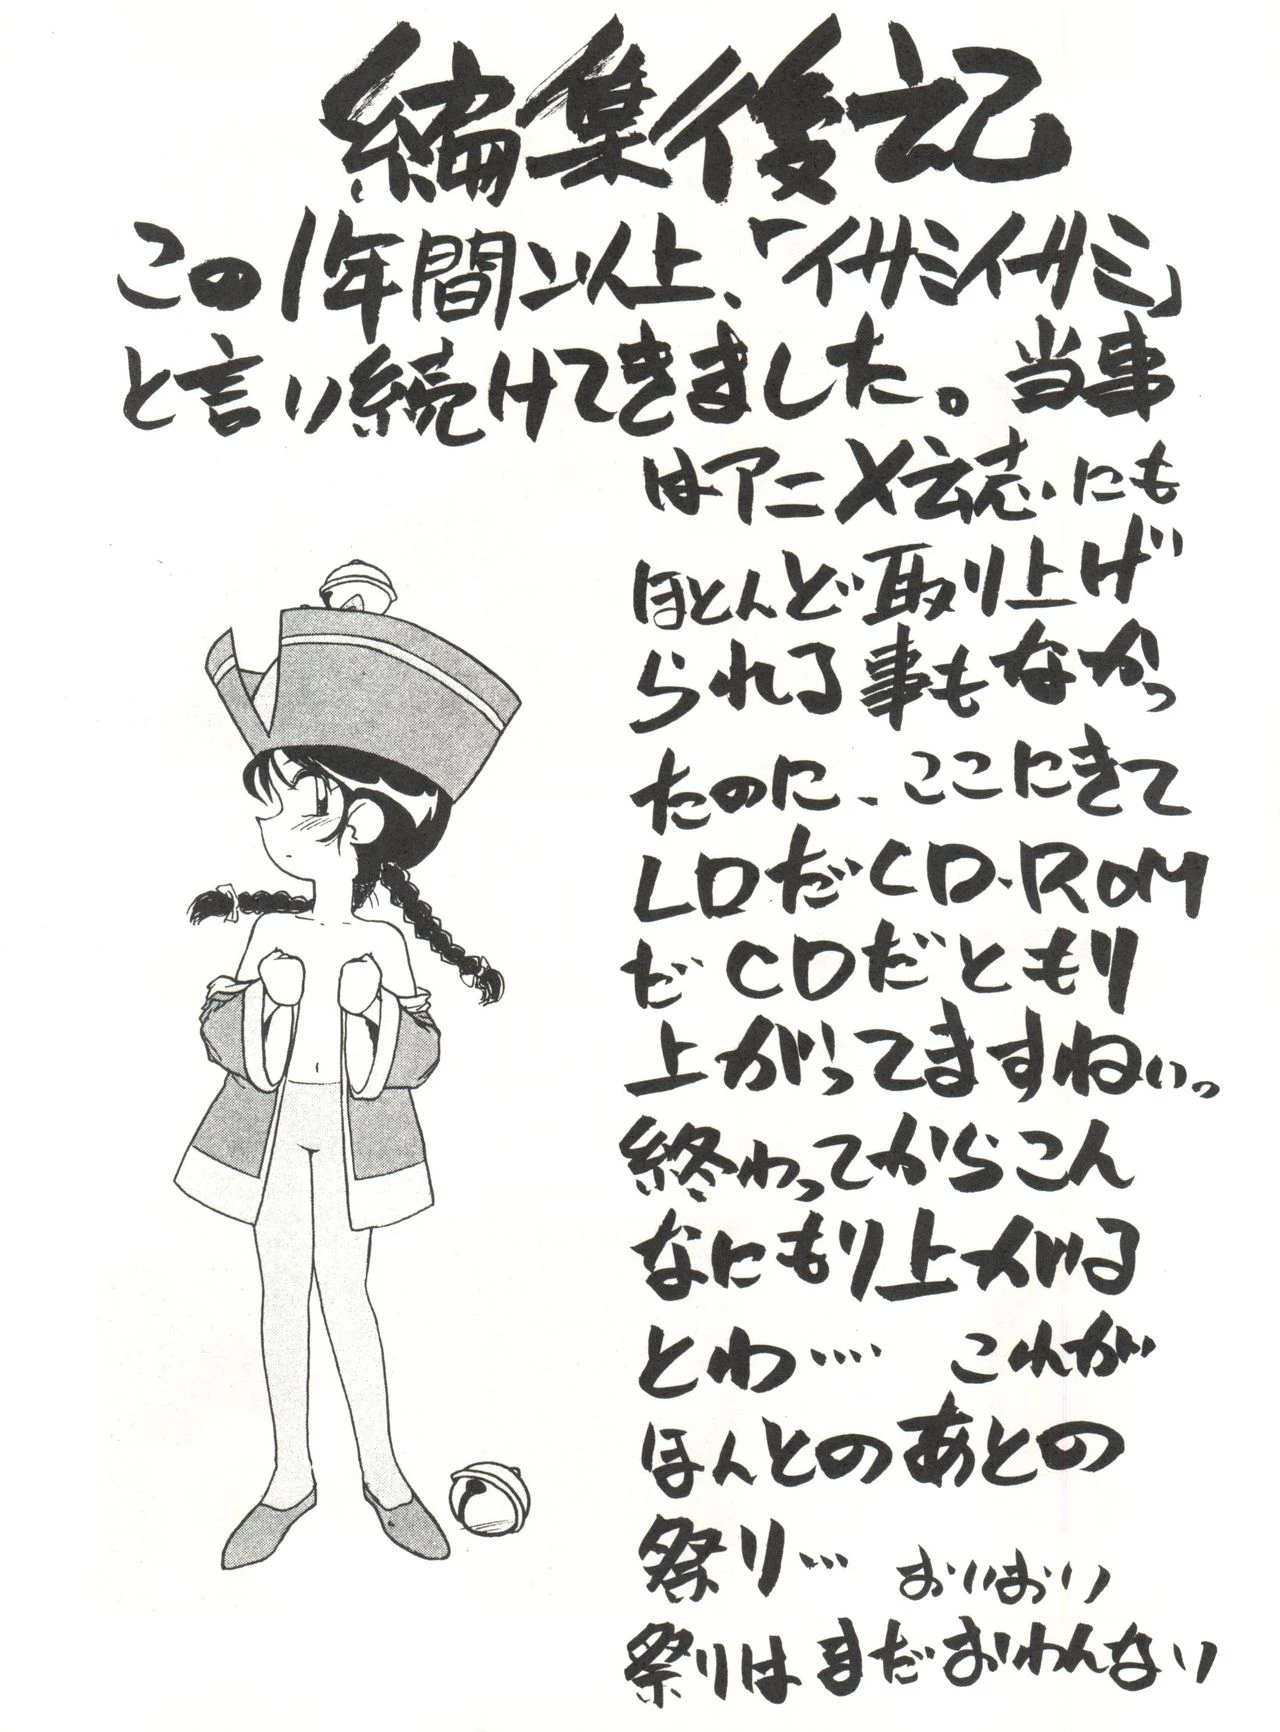 編集後記
この1年間以上、「イサミイサミ」
と言い続けてきました。当事
はアニメ誌にも
ほとんど取り上げ
られる事もなかっ
たのに、ここにきて
LDだCD-ROM
だCDだともり
上がってますねぃっ
終わってからこん
なにもり上がる
とわ…‥ これが
ほんとのあとの
祭り… おいおい
祭りはまだおわんない